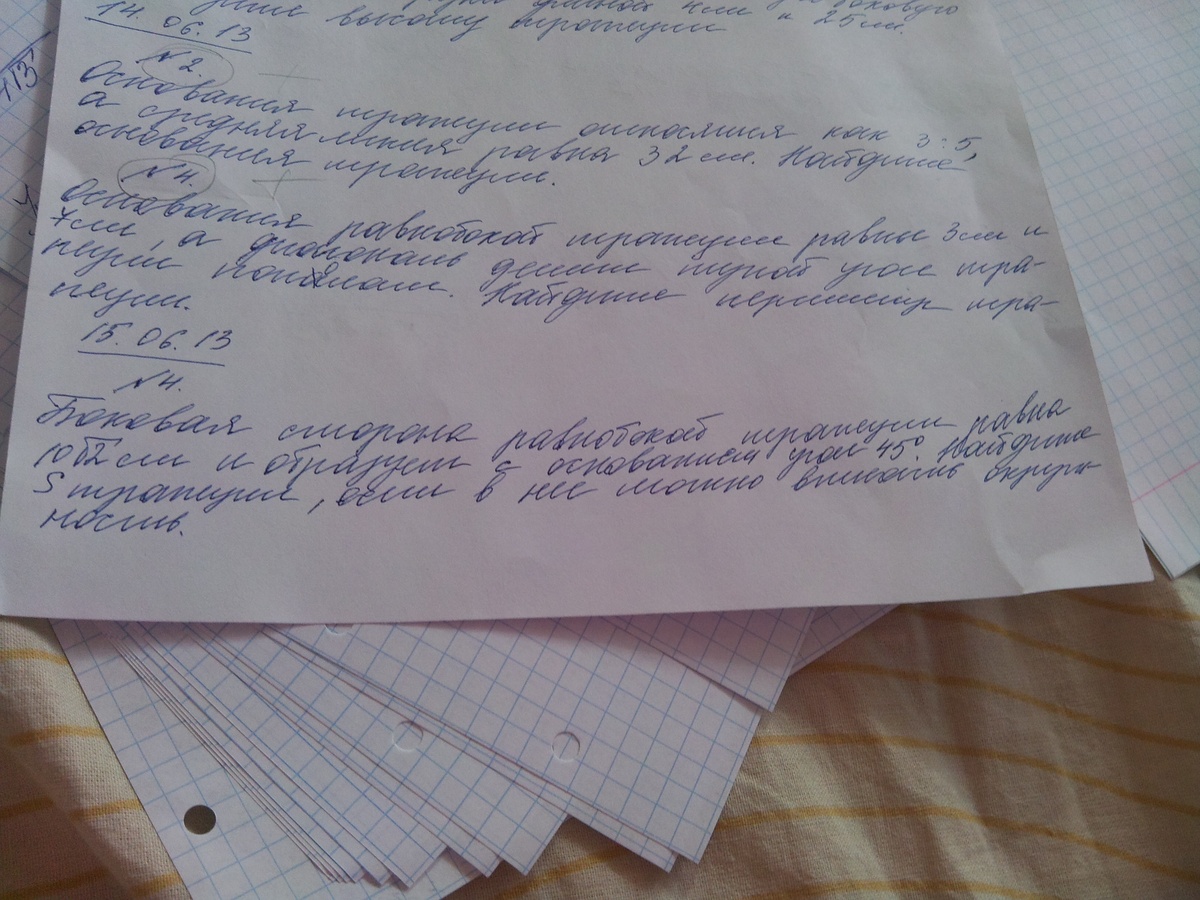 длиной
боковую
высоту трапеции
и 25 см.
14. 06. 13
√13
№2.
Основания трапеции относятся как 3:5,
а средняя линия равна 32 см. Найдите
основания трапеции.
№4.
Основания равнобокой трапеции равны 3 см и
7 см, а диагональ делит тупой угол тра-
пеции пополам. Найдите периметр тра-
пеции.
15. 06. 13
№4.
Боковая сторона равнобокой трапеции равна
10√2 см и образует с основанием угол 45°. Найдите
S трапеции, если в нее можно вписать окруж-
ность.